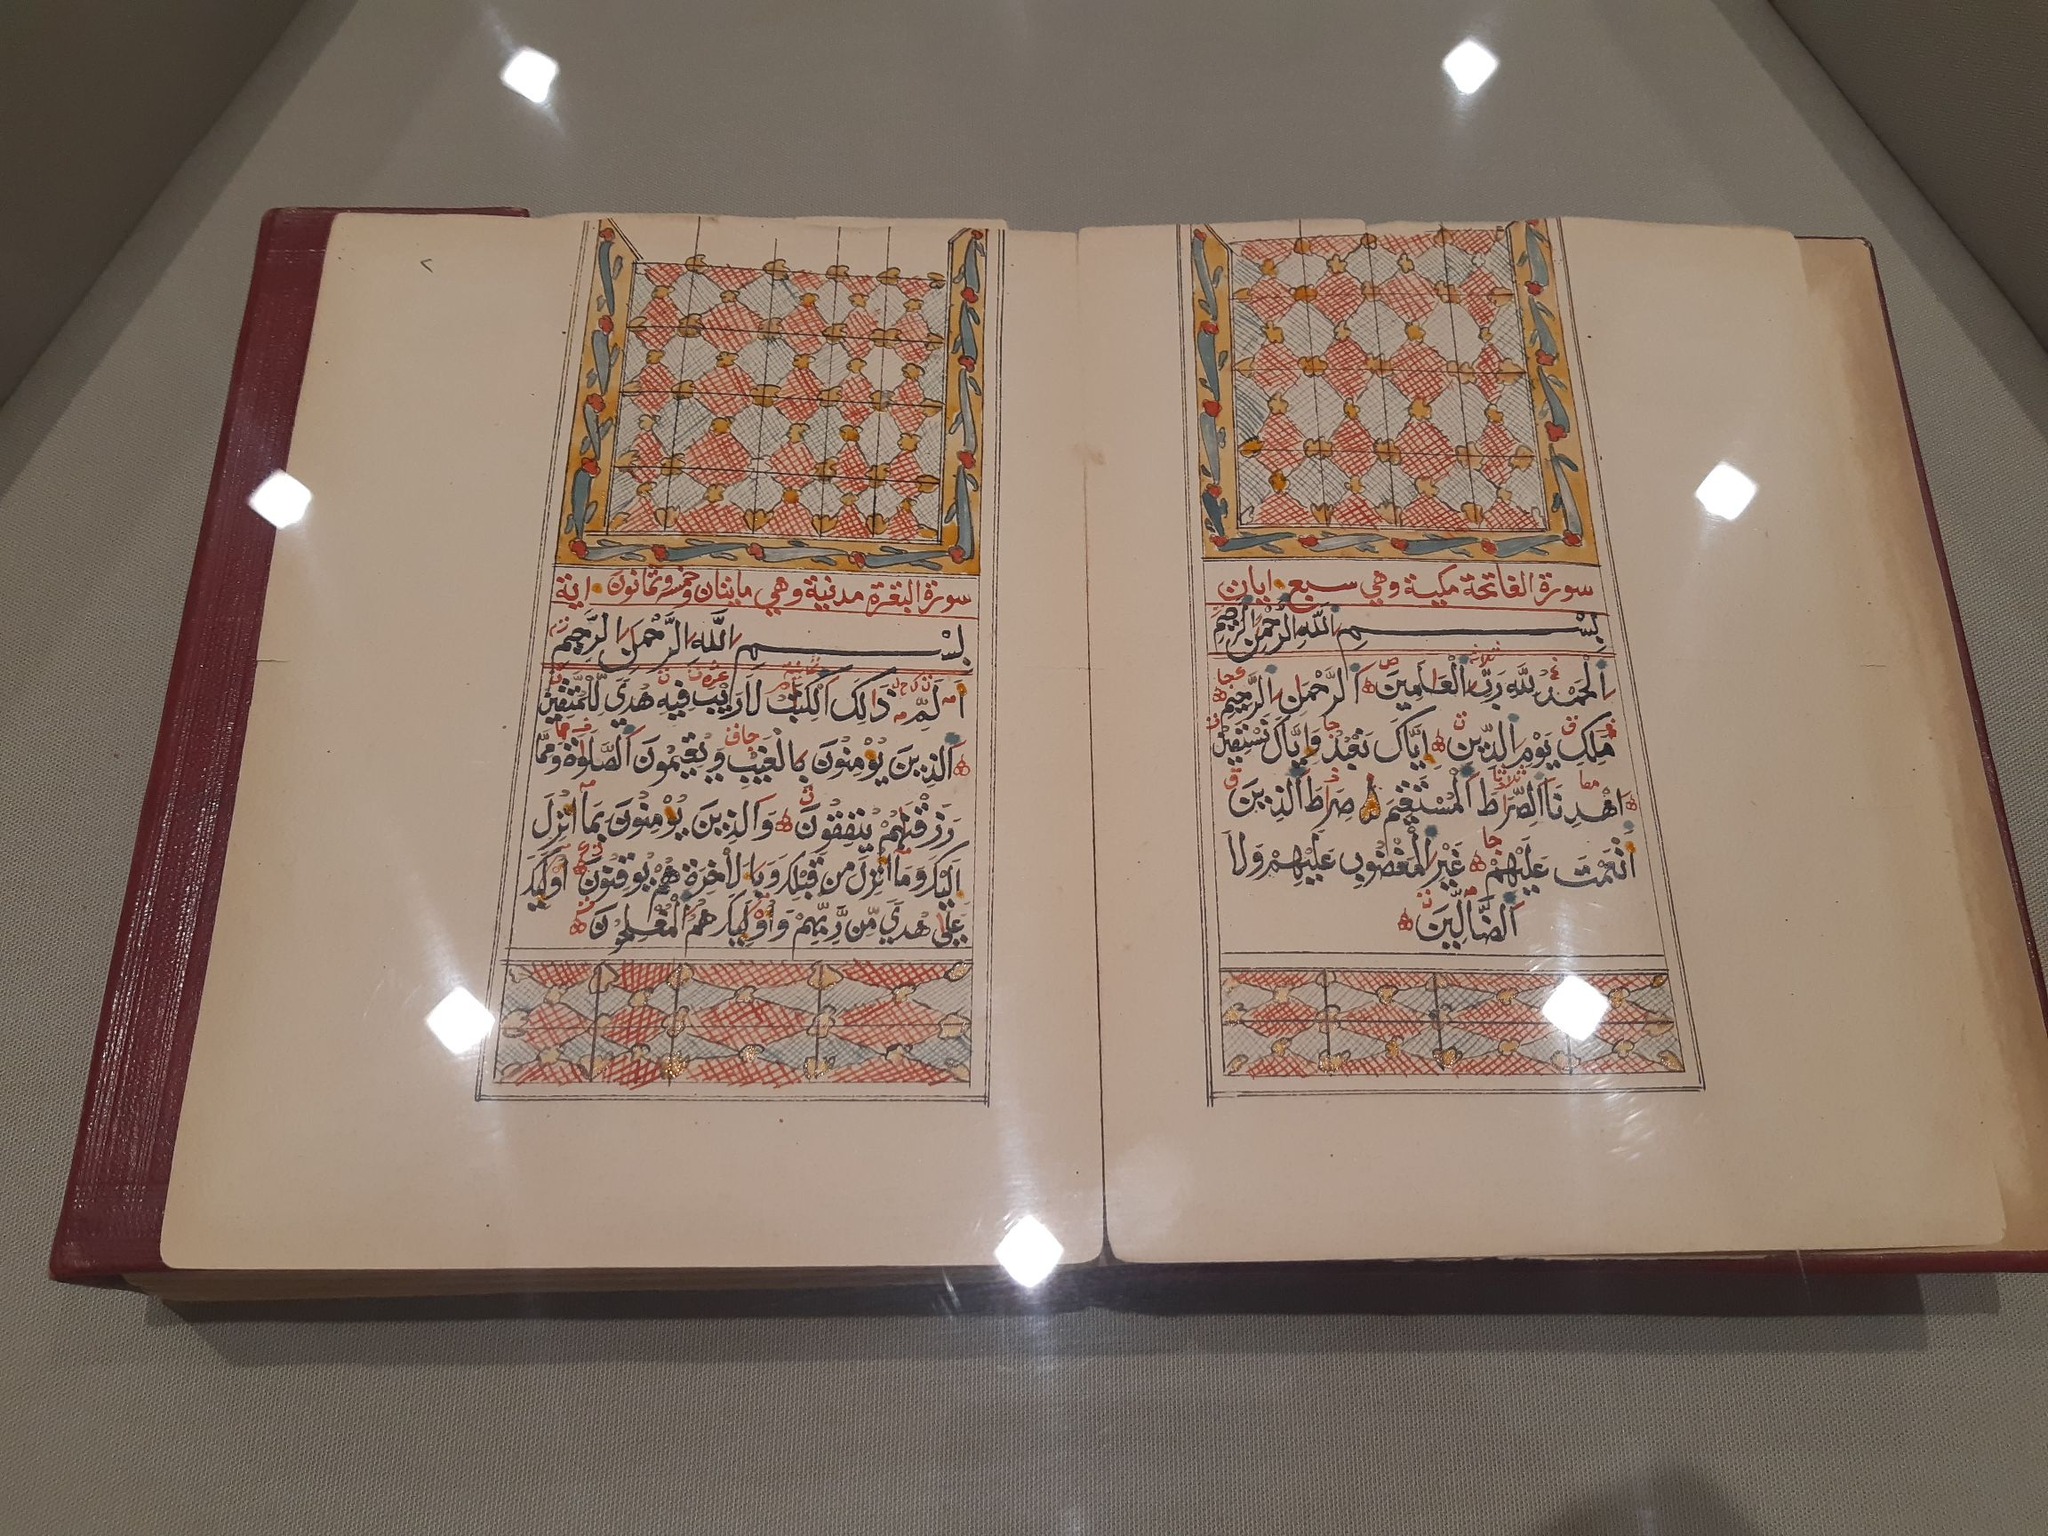 سورة الفاتحة مكية وهي سبع ايات
بِسْمِ اللّٰهِ الرَّحْمٰنِ الرَّحِيمِ
اَلْحَمْدُ لِلّٰهِ رَبِّ الْعَالَمِينَ اَلرَّحْمٰنِ الرَّحِيمِ
مٰلِكِ يَوْمِ الدِّينِ اِيَّاكَ نَعْبُدُ وَاِيَّاكَ نَسْتَعِينُ
اِهْدِنَا الصِّرَاطَ الْمُسْتَقِيمَ صِرَاطَ الَّذِينَ
اَنْعَمْتَ عَلَيْهِمْ غَيْرِ الْمَغْضُوبِ عَلَيْهِمْ وَلَا
اَلضَّالِّينَ
سورة البقرة مدنية وهي مايتان وخمس وثمانون اية
بِسْمِ اللّٰهِ الرَّحْمٰنِ الرَّحِيمِ
اَلٓمّٓ ذَالِكَ الْكِتٰبُ لَا رَيْبَ فِيهِ هُدًي لِّلْمُتَّقِينَ
اَلَّذِينَ يُؤْمِنُونَ بِالْغَيْبِ وَيُقِيمُونَ الصَّلٰوةَ وَمِمَّا
رَزَقْنٰهُمْ يُنْفِقُونَ وَالَّذِينَ يُؤْمِنُونَ بِمَآ اُنْزِلَ
اِلَيْكَ وَمَآ اُنْزِلَ مِنْ قَبْلِكَ وَبِالْاٰخِرَةِ هُمْ يُوقِنُونَ اُولٰٓئِكَ
عَلٰي هُدًي مِّنْ رَّبِّهِمْ وَاُولٰٓئِكَ هُمُ الْمُفْلِحُونَ